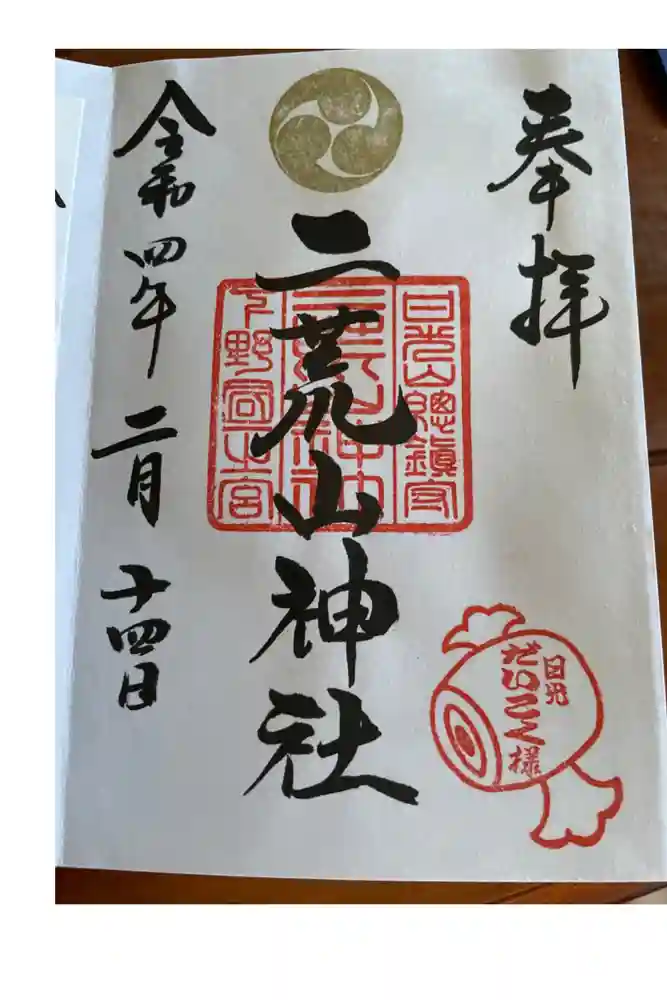 奉拝
日光山總鎮守
二荒山神社
二荒山神社
下野國一宮
令和四年二月十四日
日光
だいこく様